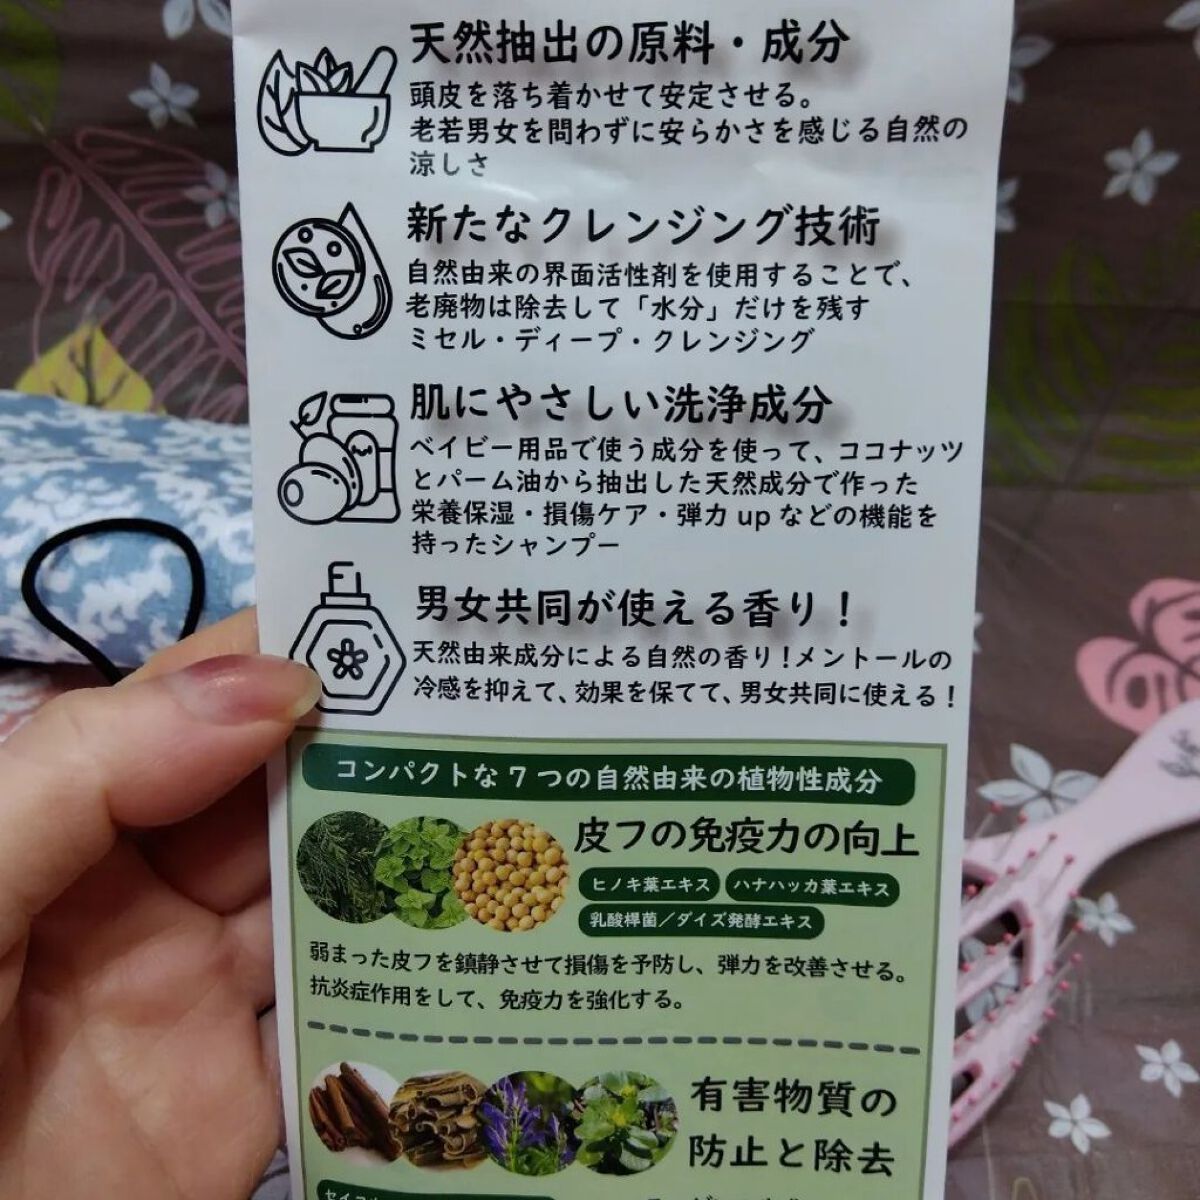 天然抽出の原料・成分
頭皮を落ち着かせて安定させる。
老若男女を問わずに安らかさを感じる自然の
涼しさ
新たなクレンジング技術
自然由来の界面活性剤を使用することで、
老廃物は除去して「水分」だけを残す
ミセル・ディープ・クレンジング
肌にやさしい洗浄成分
ベイビー用品で使う成分を使って、ココナッツ
とパーム油から抽出した天然成分で作った
栄養保湿・損傷ケア・弾力upなどの機能を
持ったシャンプー
男女共同が使える香り！
天然由来成分による自然の香り！メントールの
冷感を抑えて、効果を保てて、男女共同に使える！
コンパクトな7つの自然由来の植物性成分
皮フの免疫力の向上
ヒノキ葉エキス ハナハッカ葉エキス
乳酸桿菌／ダイズ発酵エキス
弱まった皮フを鎮静させて損傷を予防し、弾力を改善させる。
抗炎症作用をして、免疫力を強化する。
有害物質の
防止と除去